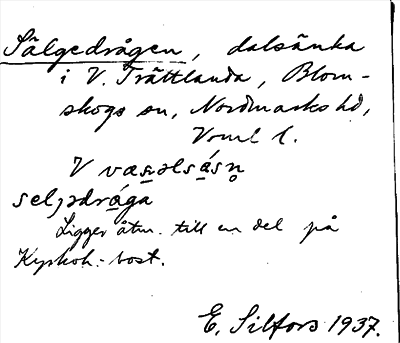 Sälgedrågen, dalsänka
i V. Trättlanda, Blom-
skogs sn, Nordmarks hd,
Vrml l.
V
selɟədrága
Ligger åtm. till en del på
Kyrkoh.-bost.
E. Silfors 1937.